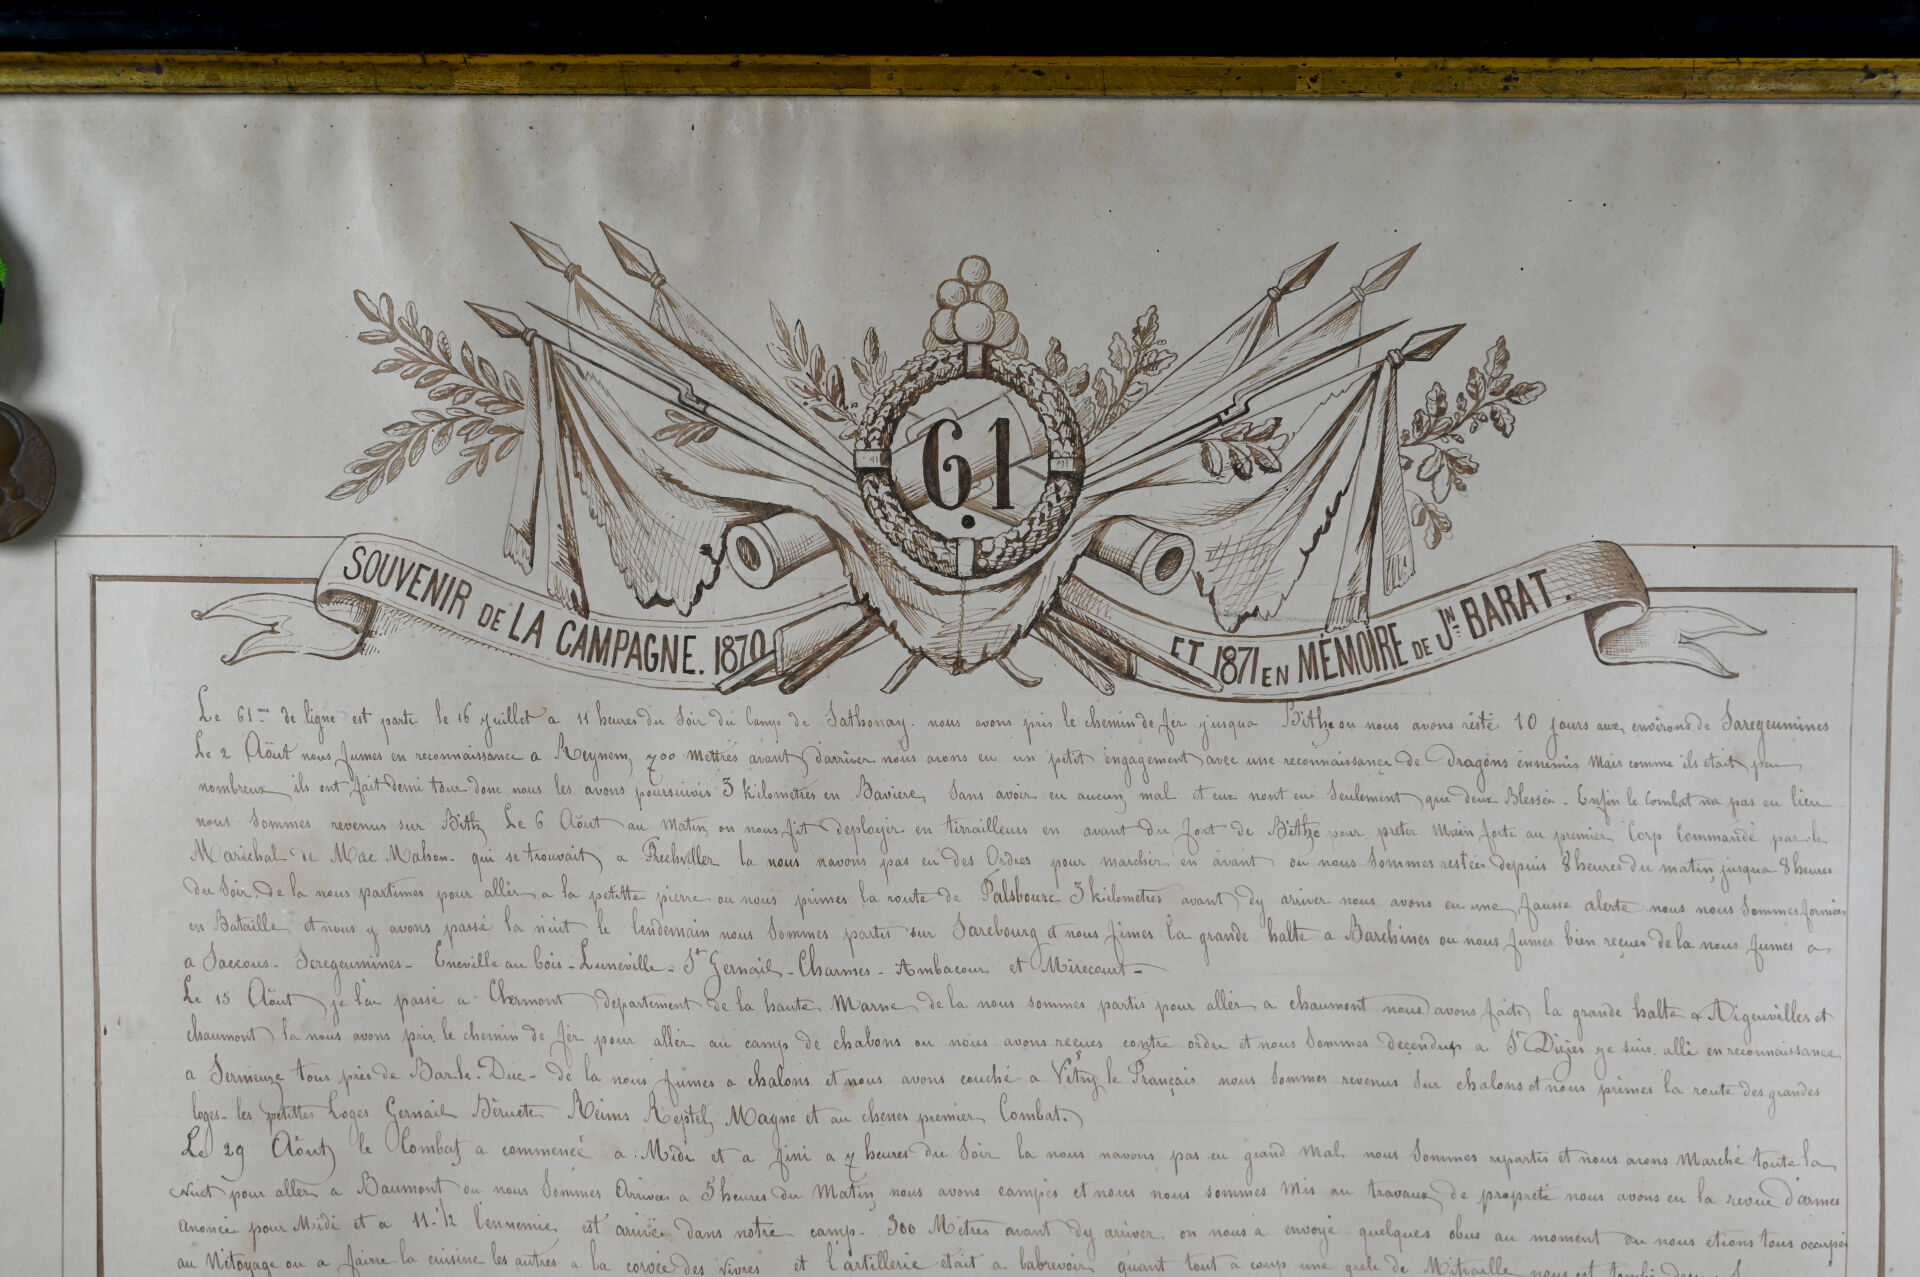 61
SOUVENIR DE LA CAMPAGNE. 1870 ET 1871 EN MÉMOIRE DE Jn BARAT.
Le 61me de ligne est parti le 16 juillet a 11 heures du Soir du Camp de Sathonay. nous avons pris le chemin de fer jusqua Bithe ou nous avons resté 10 jours aux environs de Saregeumines
Le 2 Août nous fumes en reconnaissance a Reynem, 700 mettres avant d'arriver nous avons eu un petit engagement avec une reconnaissance de Dragons énnemis Mais comme ils était peu
nombreux ils ont fait demi tour donc nous les avons poursuivis 3 kilometres en Baviere, Sans avoir eu aucun mal et eux nont eu Seulement que deux Blessés - Enfin le Combat na pas eu lieu
nous Sommes revenus sur Bith Le 6 Août au Matin, on nous fit deployer en tirrailleurs en avant du fort de Bithe pour preter Main forte au premier Corp Commandé par le
Marichal de Mac Mahon - qui se trouvait a Rechviller la nous navons pas eu des Ordres pour marcher en avant ou nous Sommes restées depuis 8 heures du matin jusqua 8 heures
du Soir. de la nous partimes pour aller a la petitte pierre ou nous primes la route de Palsbourc 3 kilometres avant dy arriver nous avons eu une fausse alerte nous nous Sommes formées
en Bataille et nous y avons passé la nuit le lendemain nous Sommes partis sur Sarebourg et nous fimes la grande halte a Barchines ou nous fumes bien reçues de la nous fumes a
a Saccous - Seregeumines - Eneville au bois - Luneville - St Gernail - Charmes - Ambacour et Mirecourt -
Le 15 Août je l'ai passé a Clermont departement de la haute Marne de la nous sommes partis pour aller a chaumont nous avons faite la grande halte a Aigeuvilles et
chaumont la nous avons pris le chemin de fer pour aller au camp de chalons ou nous avons reçues contre ordre et nous Sommes deçendus a St Dizies je suis allé en reconnaissance
a Sermeuze tous près de Bar-le-Duc - de la nous fumes a chalons et nous avons couché a Vitry le Français nous Sommes revenus Sur chalons et nous primes la route des grandes
loges - les petittes Loges Gernail Réims Reptel, Mayne et au chenes premier Combat.
Le 29 Août le Combat a commencé a Midi et a fini a 7 heures du Soir la nous navons pas eu grand Mal nous Sommes repartis et nous avons Marché toute la
Nuit pour aller a Baumont ou nous Sommes Arrivées a 5 heures du Matin nous avons campés et nous nous sommes Mis au travaux de propreté nous avons eu la revue d'armes
anoncé pour Midi et a 11-1/2 l'ennemie est arrivée dans notre camp - 300 Mètres avant dy arriver on nous a envoyé quelques obus au moment ou nous etions tous occupés
au Nétoyage ou a fairre la cuisine les autres a la corvée des vivres et l'artillerie etait a labrevoir quant tout a coup une grele de Mitraille nous est tombé